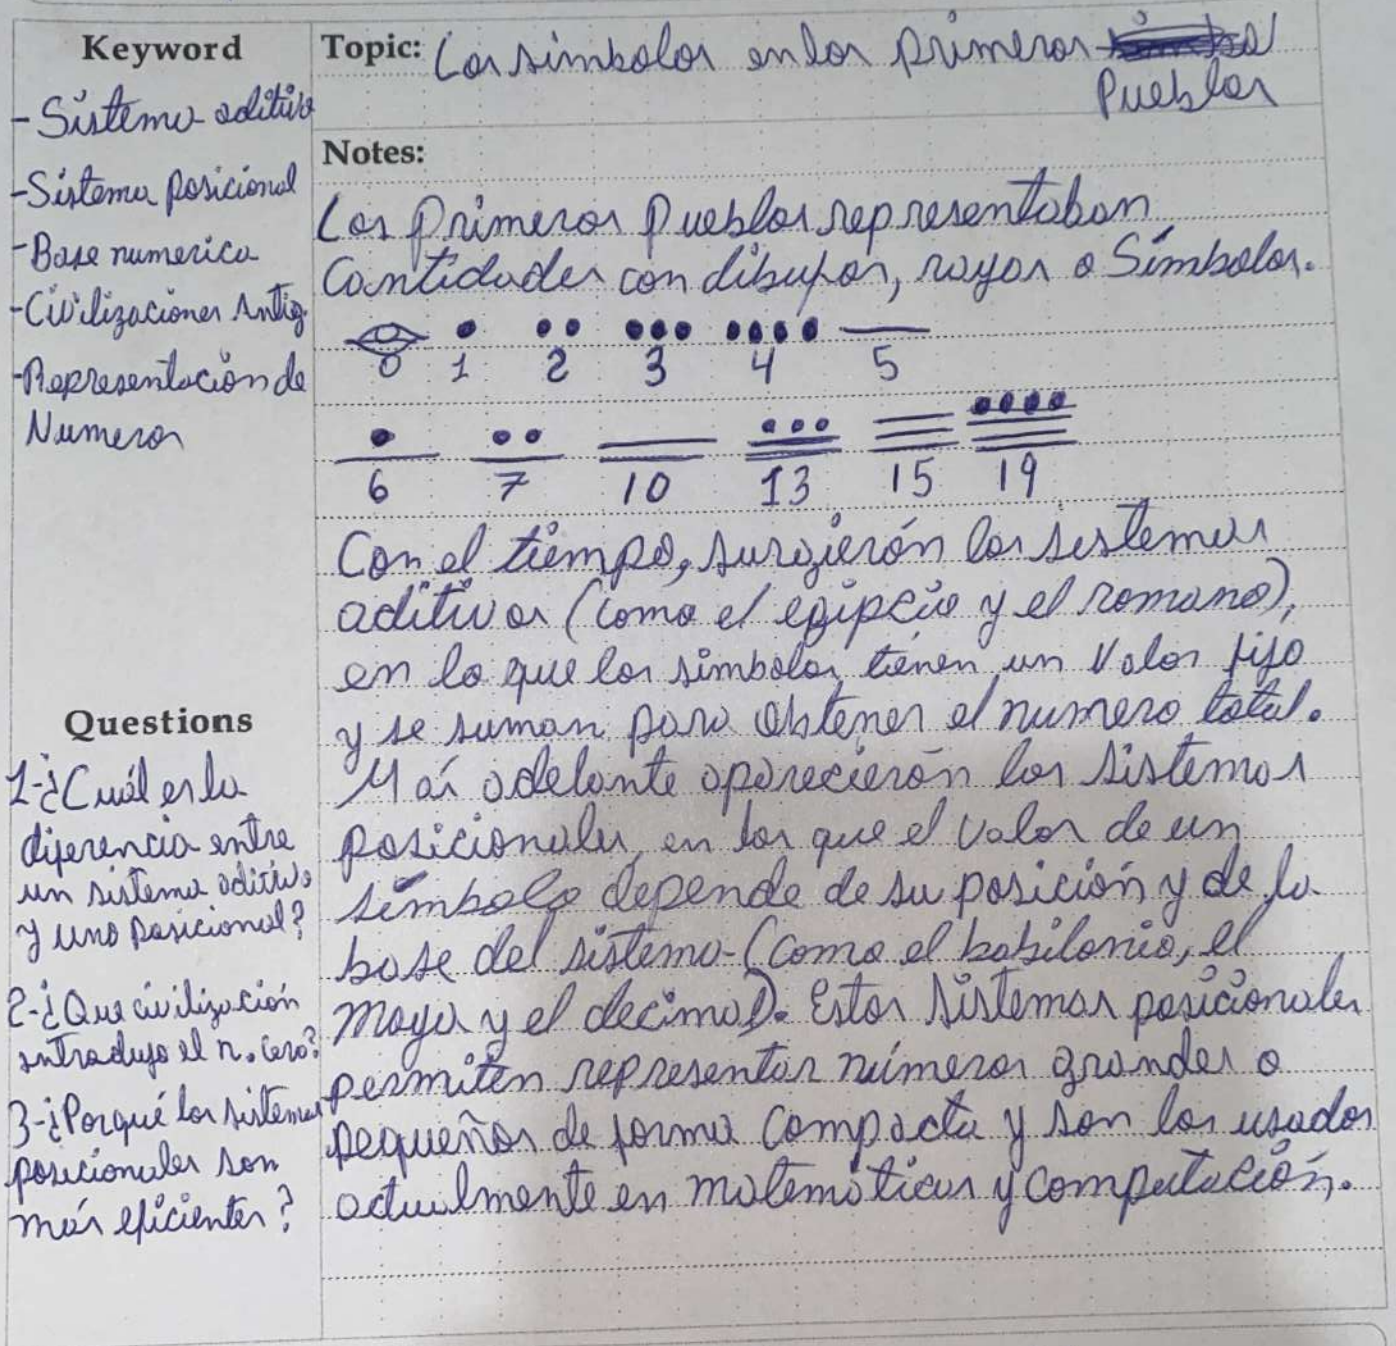 Keyword
- Sistema aditivo
- Sistema Posicional
- Base numerica
- Civilizaciones Antig.
- Representación de
Numeros
Questions
1-¿Cuál es la
diferencia entre
un sistema aditivo
y uno Posicional?
2-¿Que civilización
introdujo el n. cero?
3-¿Porqué los sistemas
posicionales son
más eficientes?
Topic: Los símbolos en los Primeros
Pueblos
Notes:
Los Primeros Pueblos representaban
Cantidades con dibujos, rayas o Símbolos.
0 1 2 3 4 5
6 7 10 13 15 19
Con el tiempo, surgierón los sistemas
aditivos (como el egipcio y el romano),
en lo que los simbolos tienen un Valor fijo
y se suman para obtener el numero total.
Más adelante aparecierón los sistemas
posicionales, en los que el valor de un
símbolo depende de su posición y de la
base del sistema (como el babilonio, el
maya y el decimal). Estos sistemas posicionales
permiten representar números grandes o
pequeños de forma Compacta y son los usados
actualmente en matemáticas y computación.